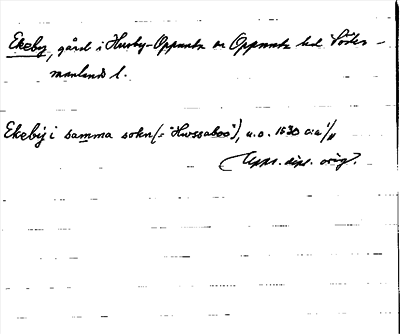 Ekeby, gård i Husby-Oppunda sn Oppunda hd. Söder-
manlands l.
Ekebÿ i samma sokn (: "Hwssaboo"), u.o. 1530 1/11
(Upps. dipl. orig.